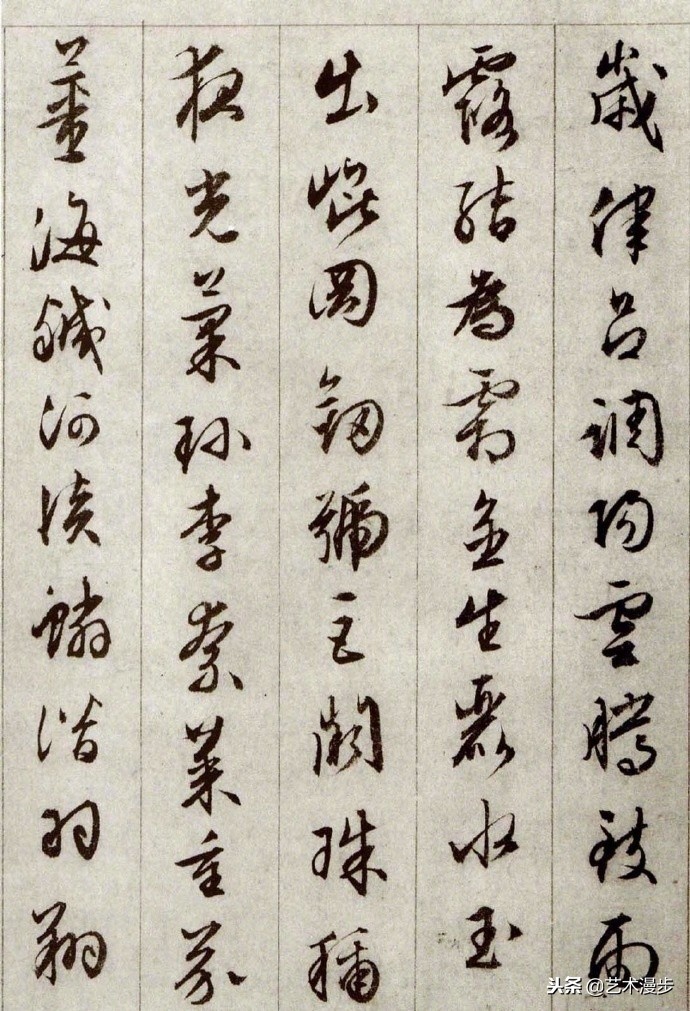 歲律呂調陽雲騰致雨
露結為霜金生麗水玉
出崐岡劍號巨闕珠稱
夜光菓珍李柰菜重芥
薑海鹹河淡鱗潛羽翔
头条@艺术漫步